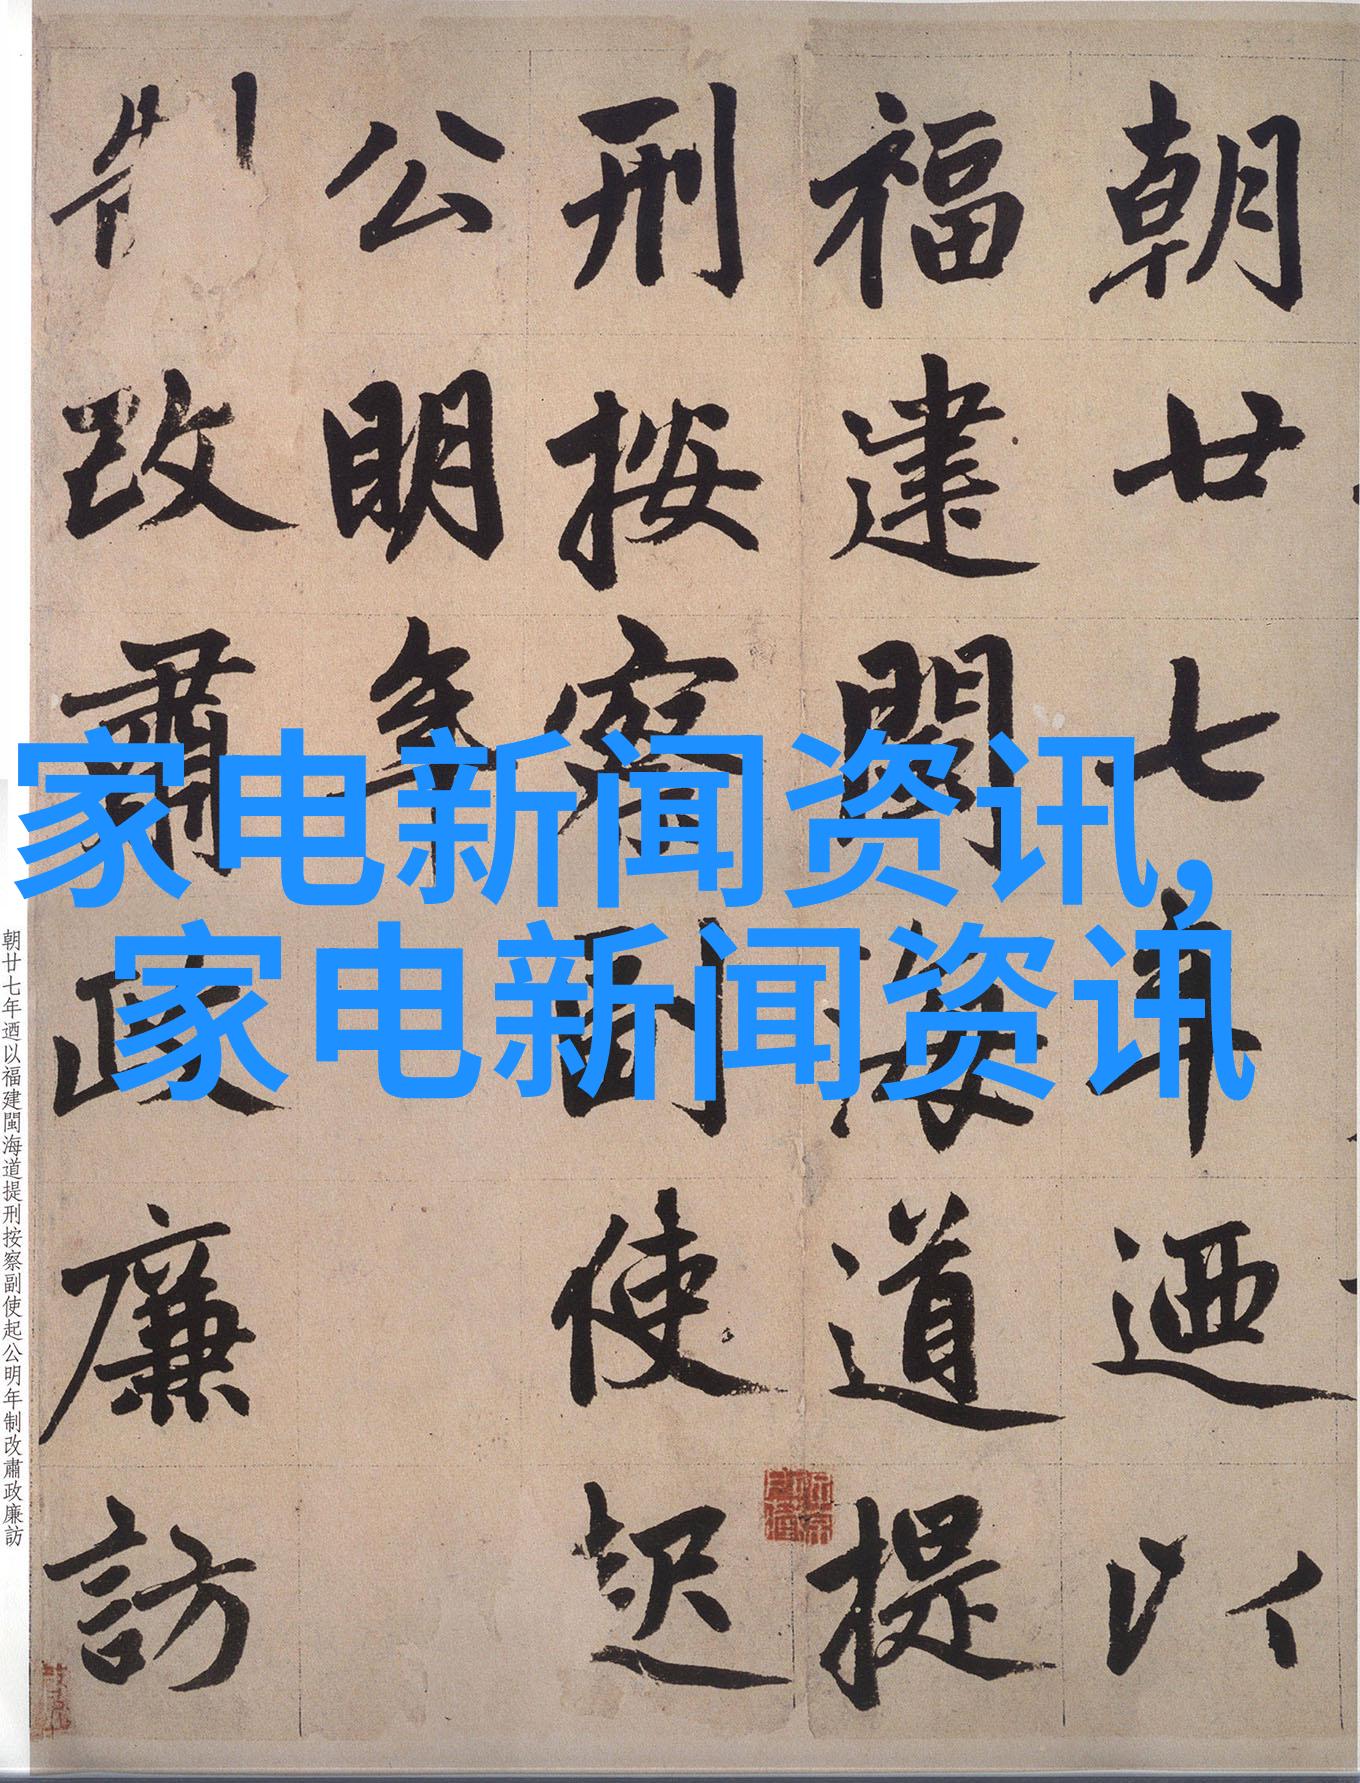 朝廿七年迺以
福建閩海道提
刑按察副使起
公明年
制改肅政廉訪
家电新闻资讯,
家电新闻资讯
朝廿七年迺以福建閩海道提刑按察副使起公明年制改肅政廉訪